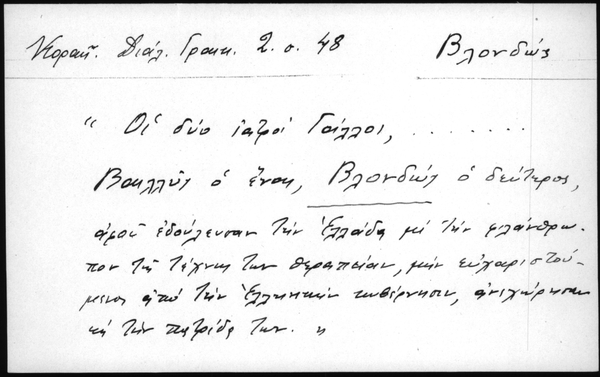 Κοραῆ. Διάλ. Γραικ. 2. σ. 48 Βλονδώς
" Οἱ δύο ἰατροί Γάλλοι, . . . . . . . .
ὁ ἕνας, Βλονδώς ὁ δεύτερος,
ἀφοῦ ἐδούλευσαν τήν Ἑλλάδα μέ τήν φιλάνθρω-
πον τῆς τέχνης των θεραπείαν, μήν εὐχαριστού-
μενοι ἀπό τήν Ἑλληνικήν κυβέρνησιν, ἀνεχώρησαν
τήν πατρίδα των. "